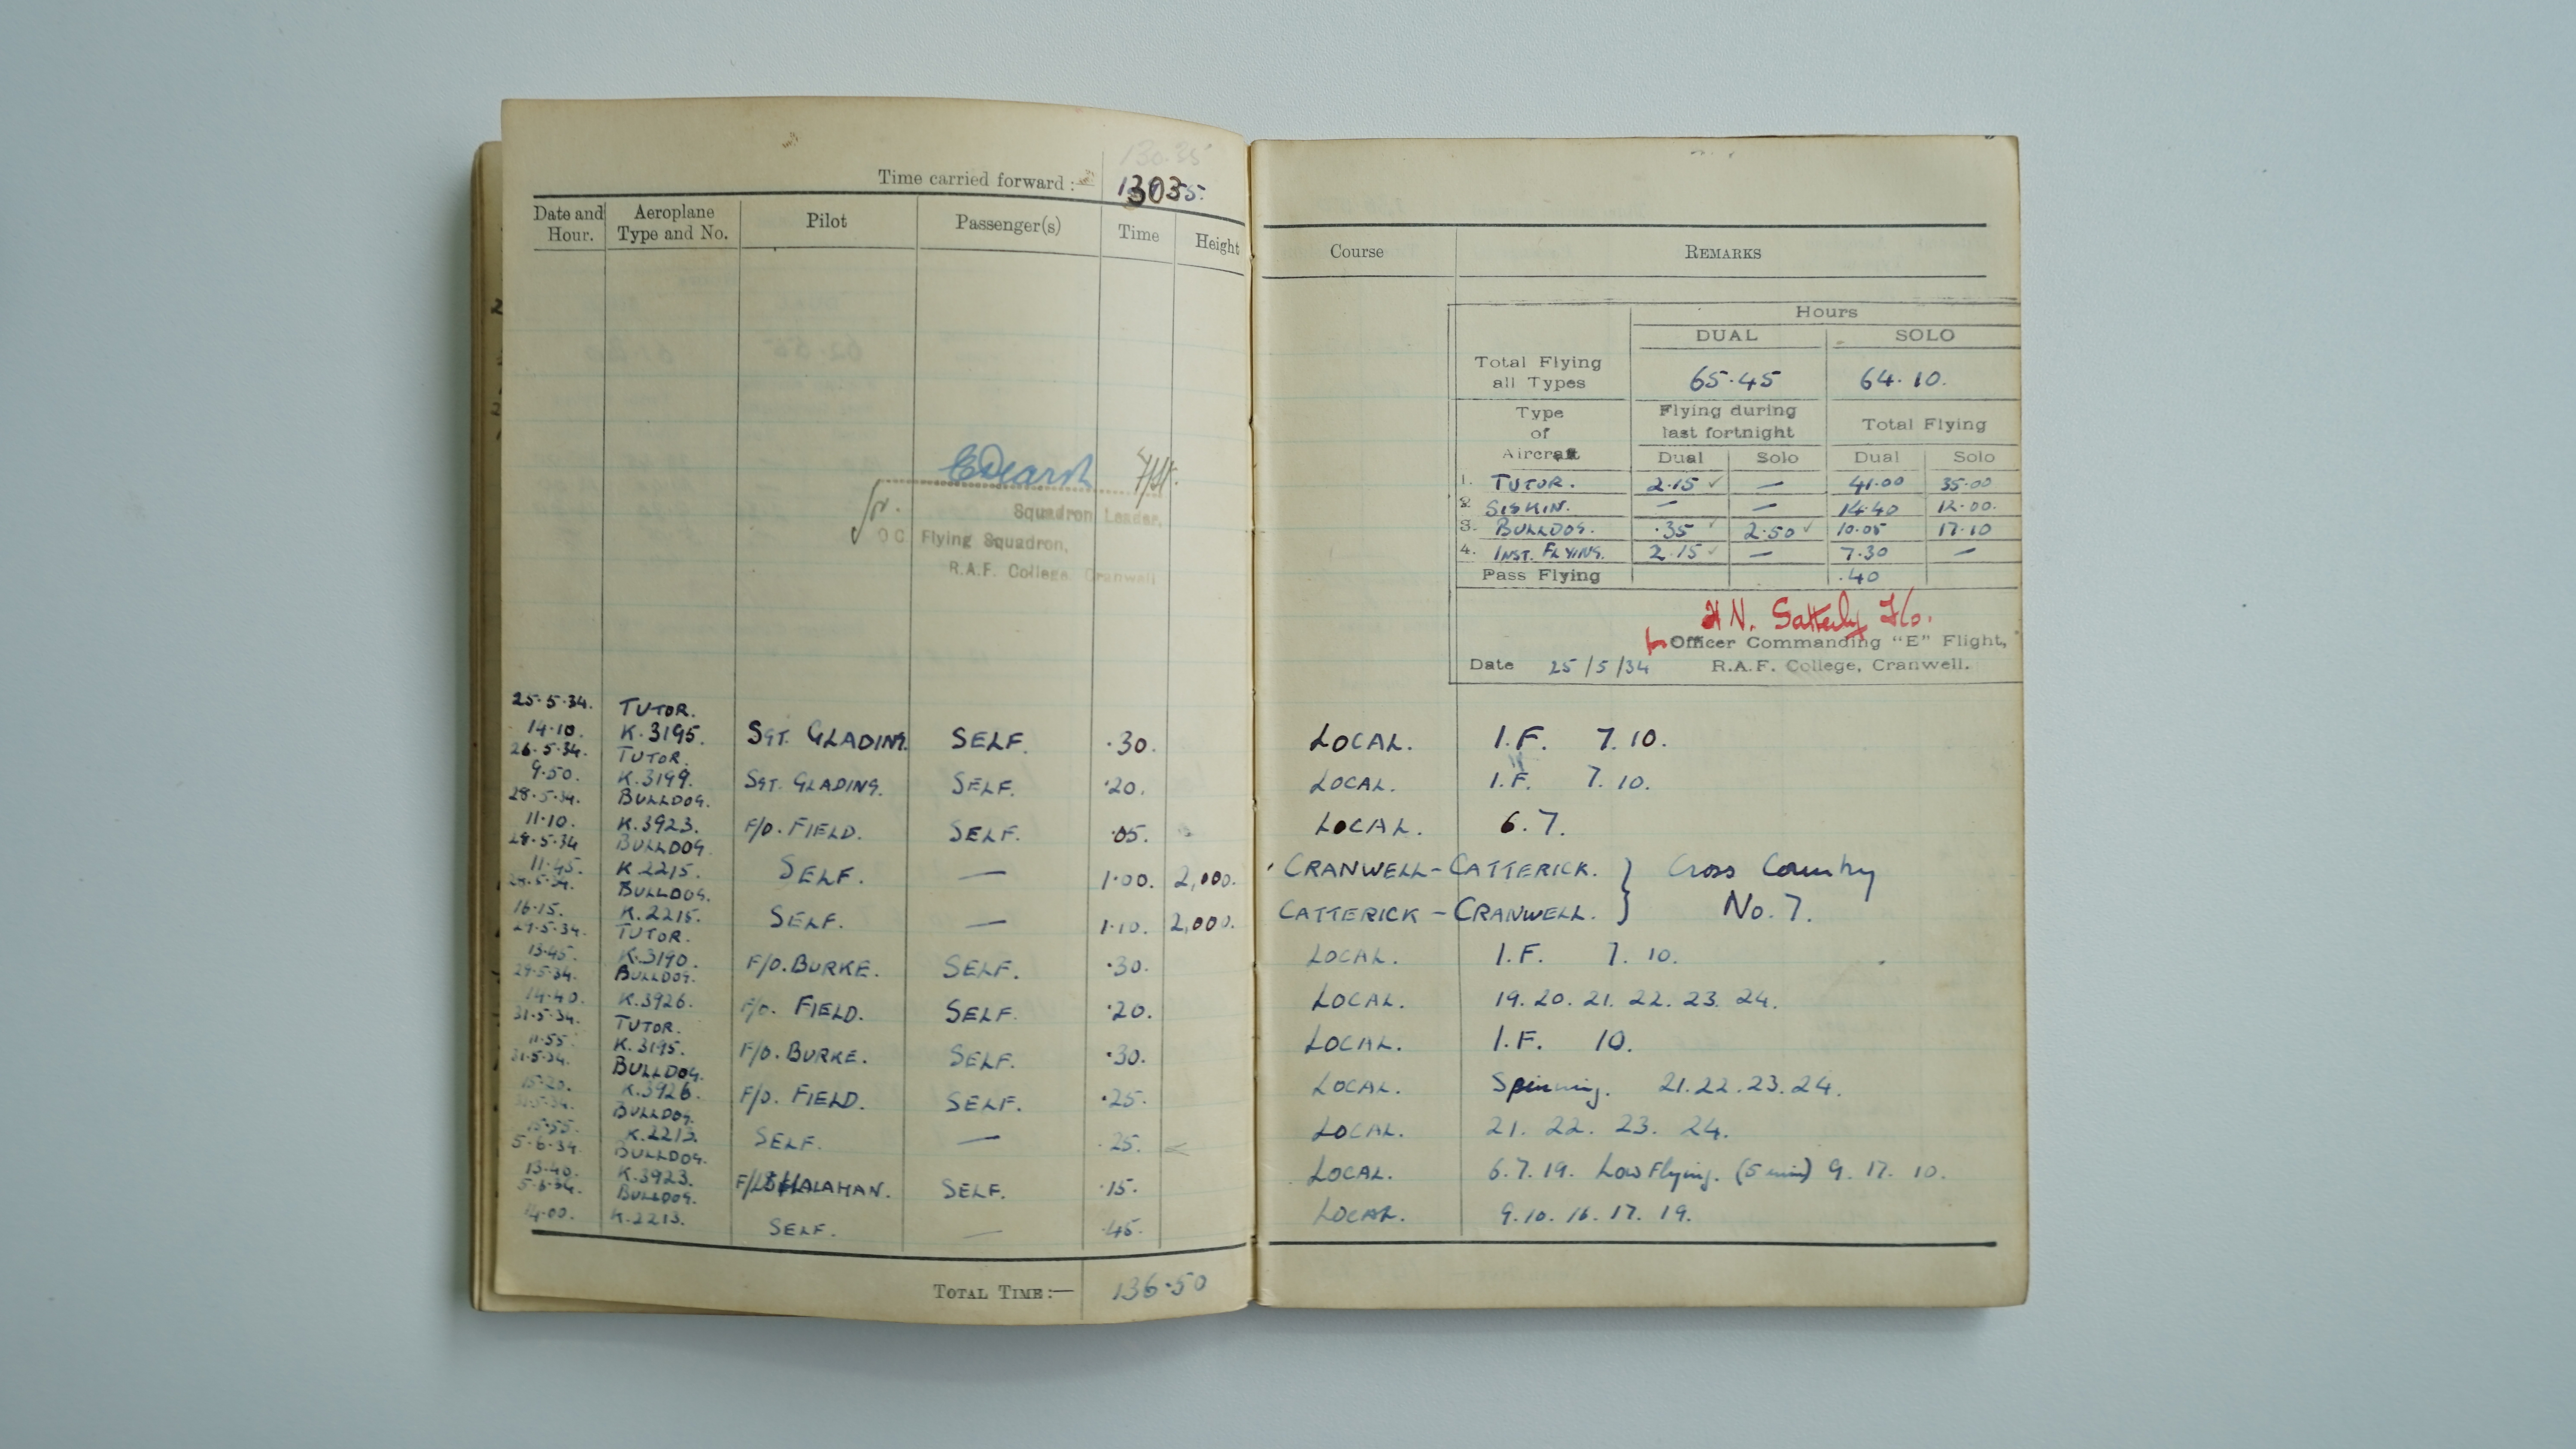 130.35
Time carried forward :—
130.35.
Date and Hour.
Aeroplane Type and No.
Pilot
Passenger(s)
Time
Height
Squadron Leader,
OC Flying Squadron,
R.A.F. College Cranwell
25·5·34. TUTOR.
14·10. K.3195. SGT. GLADING. SELF. ·30.
26·5·34. TUTOR.
9·50. K.3199. SGT. GLADING. SELF. ·20.
28·5·34. BULLDOG.
11·10. K.3923. F/O. FIELD. SELF. ·05.
28·5·34 BULLDOG.
11·45. K.2215. SELF. — 1·00. 2,000.
28·5·34. BULLDOG.
16·15. K.2215. SELF. — 1·10. 2,000.
29·5·34. TUTOR.
13·45. K.3190. F/O. BURKE. SELF. ·30.
29·5·34. BULLDOG.
14·40. K.3926. F/O. FIELD. SELF. ·20.
31·5·34. TUTOR.
11·55. K.3195. F/O. BURKE. SELF. ·30.
31·5·34. BULLDOG.
15·20. K.3926. F/O. FIELD. SELF. ·25.
31·5·34. BULLDOG.
15·55. K.2213. SELF. — ·25.
5·6·34. BULLDOG.
13·40. K.3923. SELF. ·15.
5·6·34. BULLDOG.
14·00. K.2213. SELF. — ·45.
TOTAL TIME :— 136·50
Course
REMARKS
Hours
DUAL SOLO
Total Flying all Types 65·45 64·10.
Type of Aircraft
Flying during last fortnight
Total Flying
Dual Solo Dual Solo
1. TUTOR. 2·15 ✓ — 41·00 35·00
2. SISKIN. — — 14·40 12·00.
3. BULLDOG. ·35 ✓ 2·50 ✓ 10·05 17·10
4. INST. FLYING. 2·15 ✓ — 7·30 —
Pass Flying ·40
H N. Satterly F/O.
Officer Commanding "E" Flight,
Date 25/5/34 R.A.F. College, Cranwell.
LOCAL. I.F. 7. 10.
LOCAL. I.F. 7. 10.
LOCAL. 6. 7.
CRANWELL-CATTERICK. } Cross Country
CATTERICK-CRANWELL. } No. 7.
LOCAL. I.F. 7. 10.
LOCAL. 19. 20. 21. 22. 23. 24.
LOCAL. I.F. 10.
LOCAL. Spinning. 21. 22. 23. 24.
LOCAL. 21. 22. 23. 24.
LOCAL. 6. 7. 19. Low Flying. (5 min) 9. 17. 10.
LOCAL. 9. 10. 16. 17. 19.